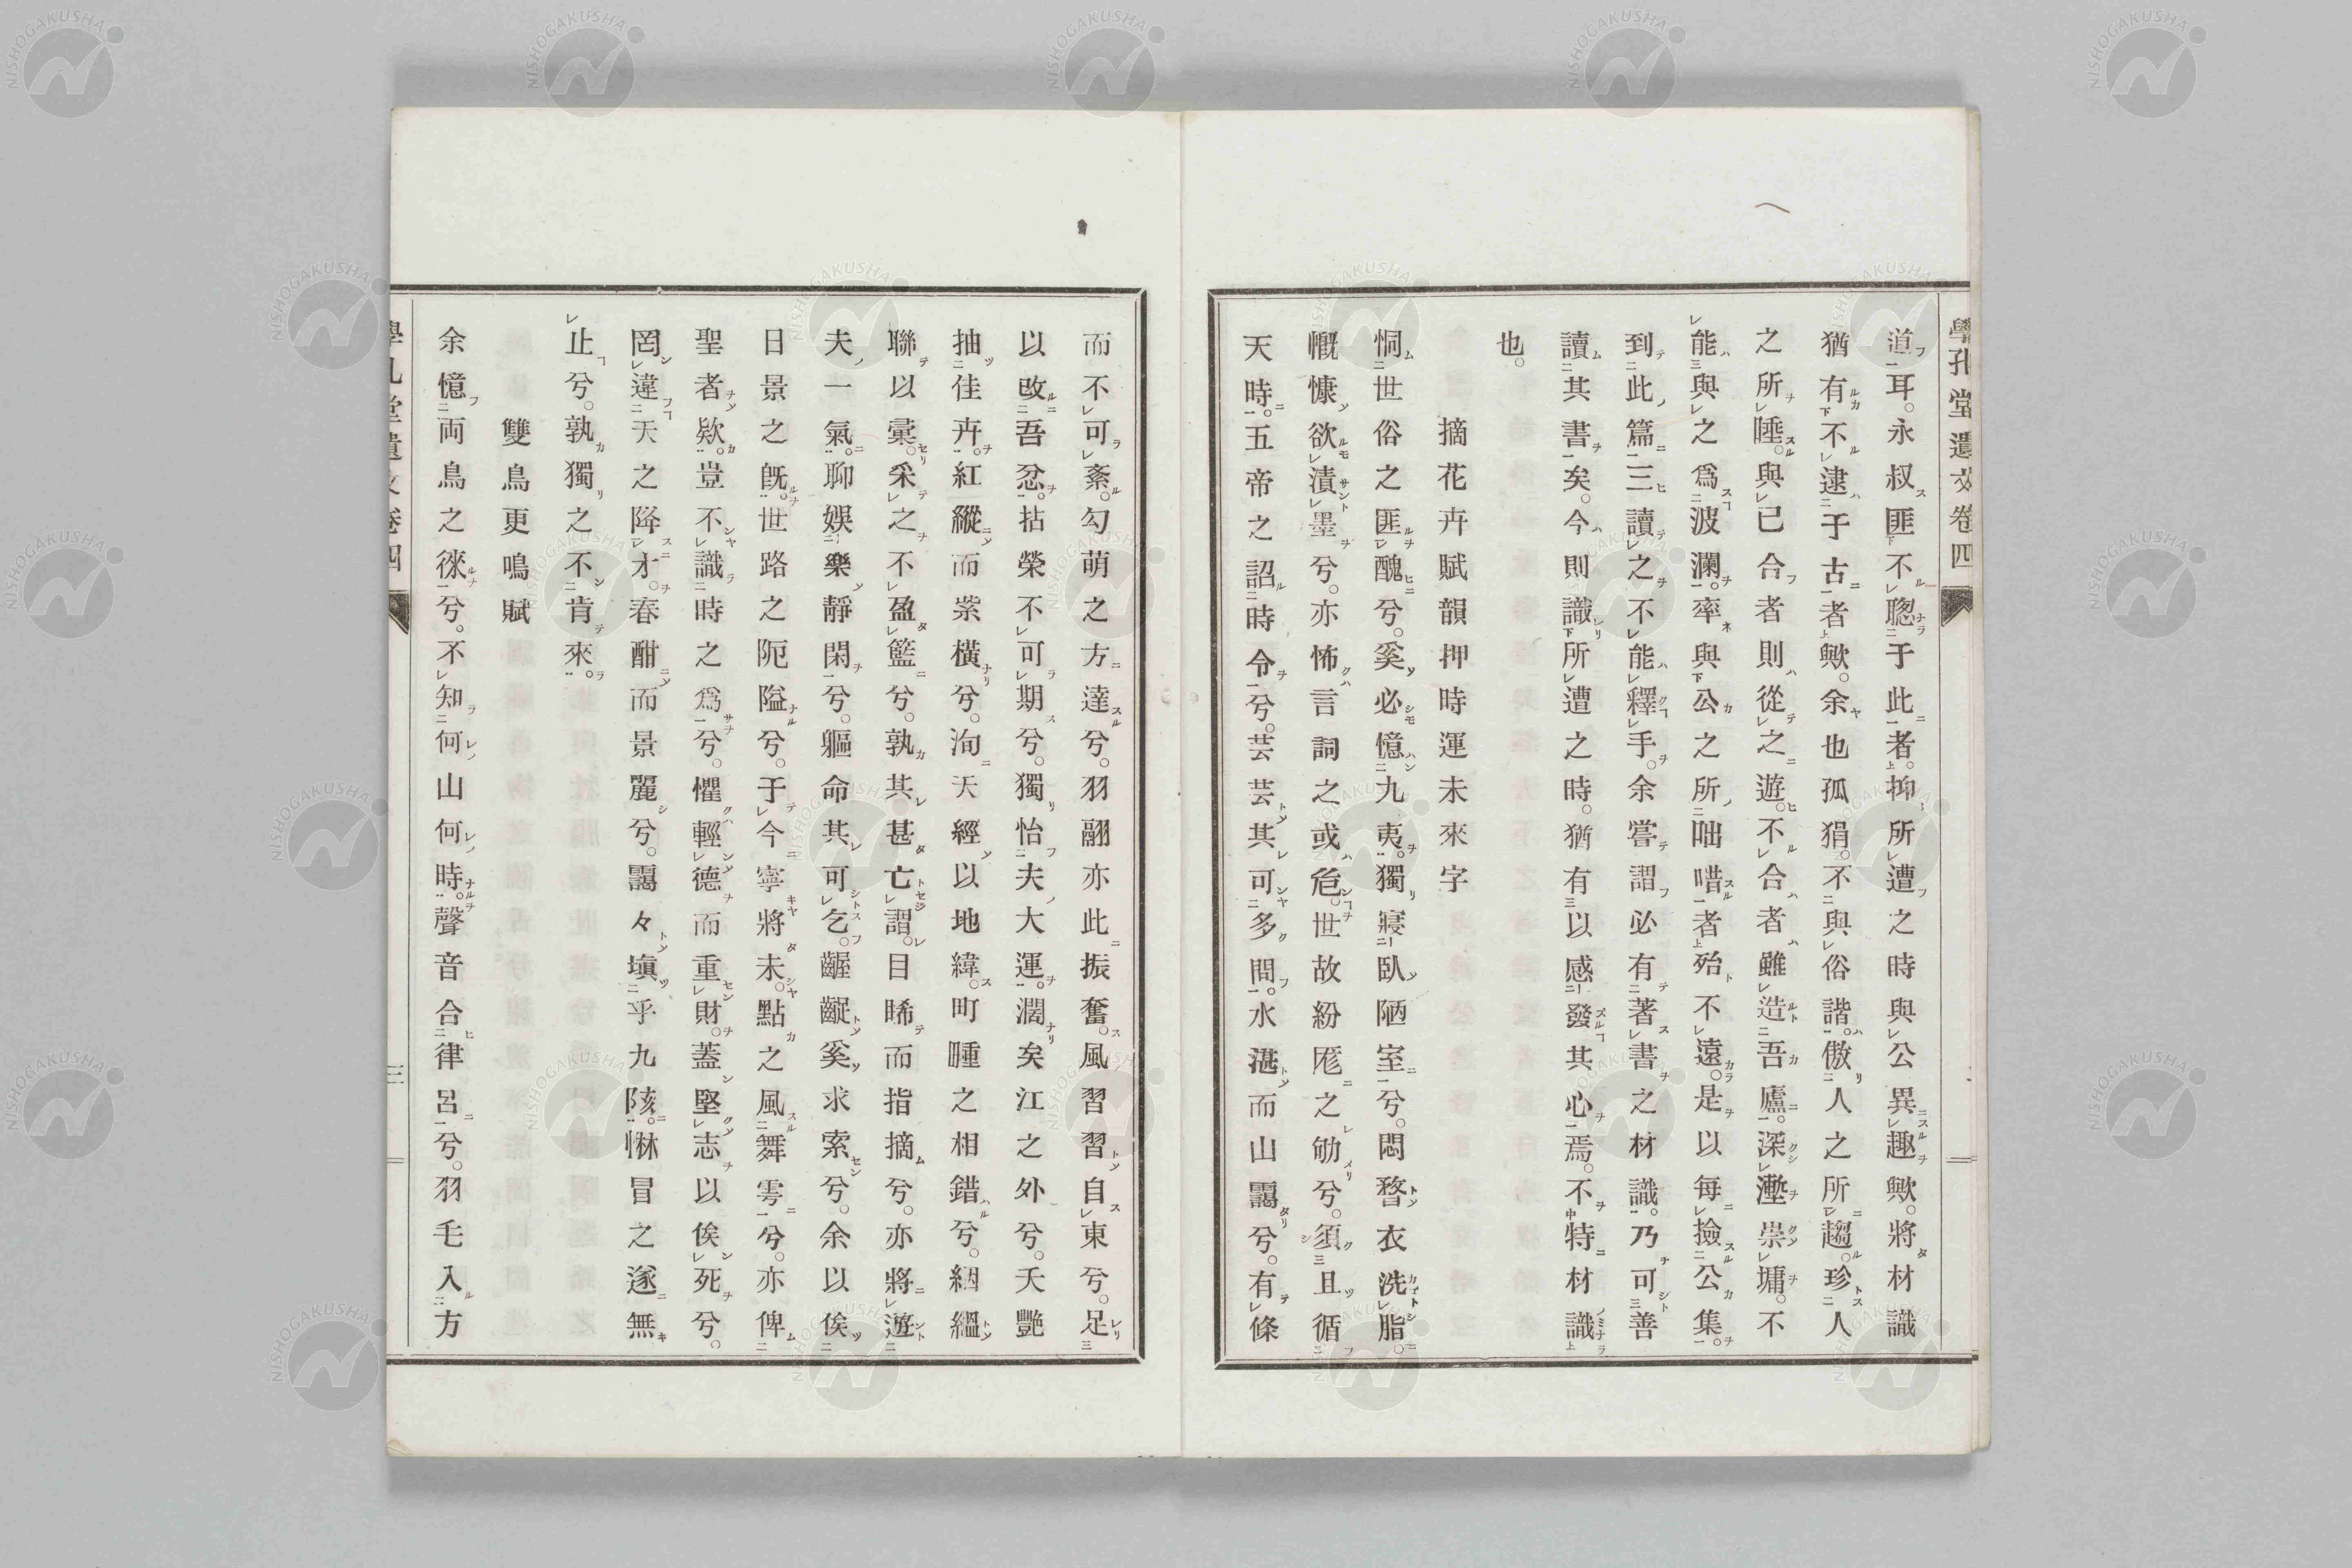 學孔堂遺文卷四
道耳。永叔匪不聰于此者。抑所遭之時與公異趣歟。將材識
猶有不逮于古者歟。余也孤狷。不與俗諧。傲人之所趨。珍人
之所唾。與己合者則從之遊。不合者雖造吾廬。深壍崇墉。不
能與之爲波瀾。率與公之所咄唶者殆不遠。是以每撿公集。
到此篇三讀之不能釋手。余嘗謂必有著書之材識。乃可善
讀其書矣。今則識所遭之時。猶有以感發其心焉。不特材識
也。
摘花卉賦韻押時運未來字
恫世俗之匪醜兮。奚必憶九夷。獨寢臥陋室兮。悶瞀衣洗脂。
慨慷欲漬墨兮。亦怖言詞之或危。世故紛厖之劬兮。須且循
天時。五帝之詔時令兮。芸芸其可多問。水湛而山靄兮。有條
而不可紊。勾萌之方達兮。羽翮亦此振奮。風習習自東兮。足
以改吾忿。拈榮不可期兮。獨怡夫大運。濶矣江之外兮。夭艷
抽佳卉。紅縱而紫橫兮。洵天經以地緯。町畽之相錯兮。絪縕
聯以彙。采之不盈籃兮。孰其甚亡謂。目睎而指摘兮。亦將遊
夫一氣。聊娛樂靜閑兮。軀命其可乞。齷齪奚求索兮。余以俟
日景之旣。世路之阨隘兮。于今寧將未。點之風舞雩兮。亦俾
聖者歟。豈不識時之爲兮。懼輕德而重財。蓋堅志以俟死兮。
罔違天之降才。春酣而景麗兮。靄々塡乎九陔。惏冒之遂無
止兮。孰獨之不肯來。
雙鳥更鳴賦
余憶両鳥之徠兮。不知何山何時。聲音合律呂兮。羽毛入方
三